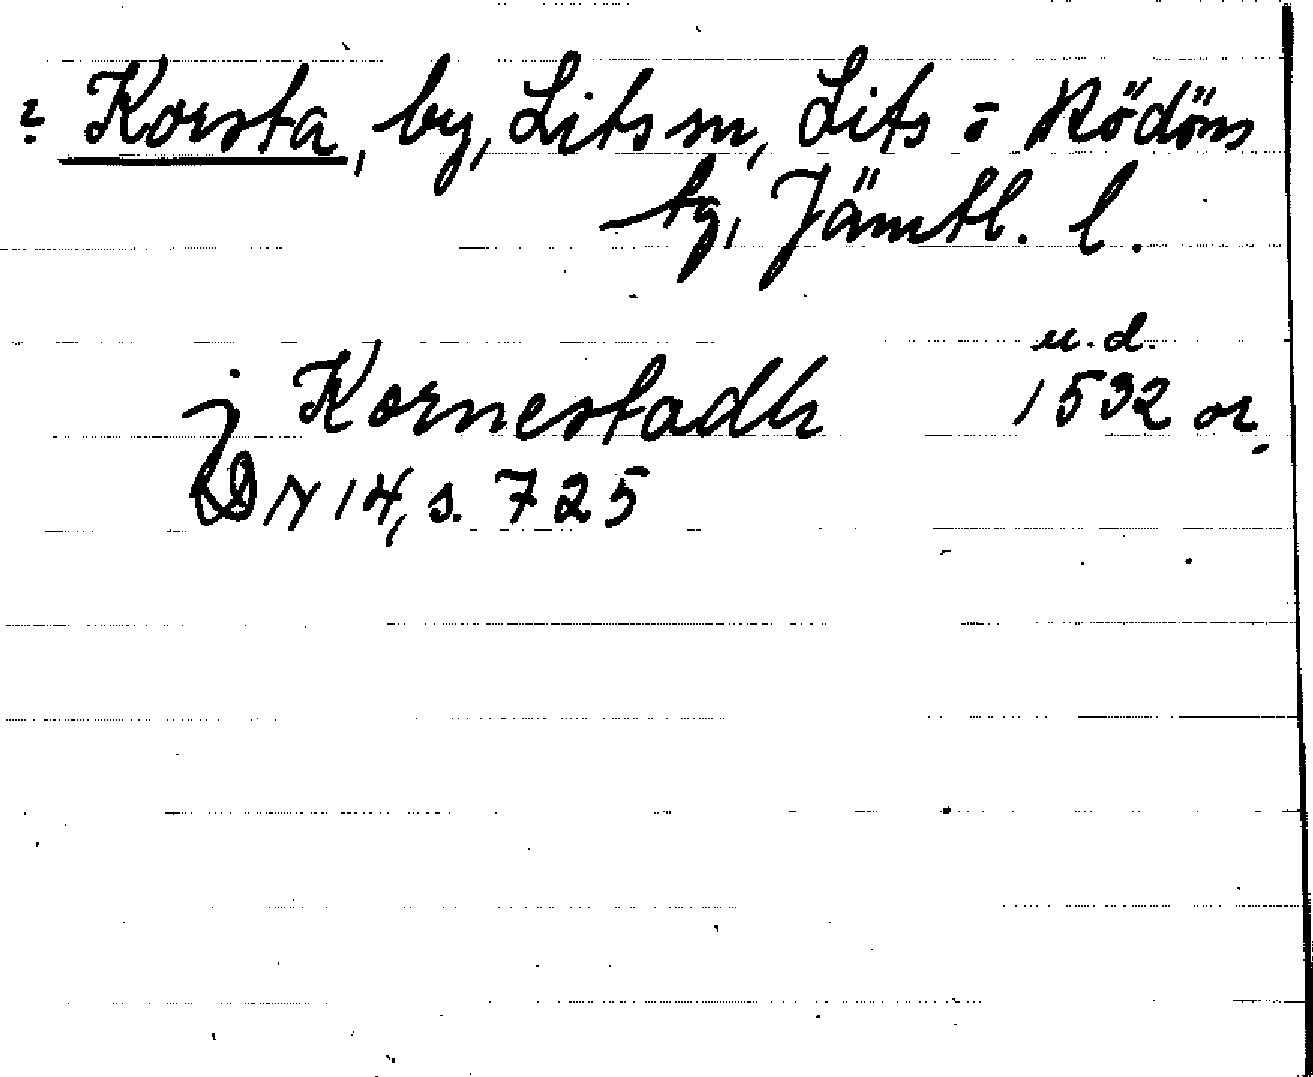 ? Korsta, by, Lits sn, Lits o Rödöns
tg, Jämtl. l.
u.d.
j Kornestadh 1532 or.
DN 14, s. 725